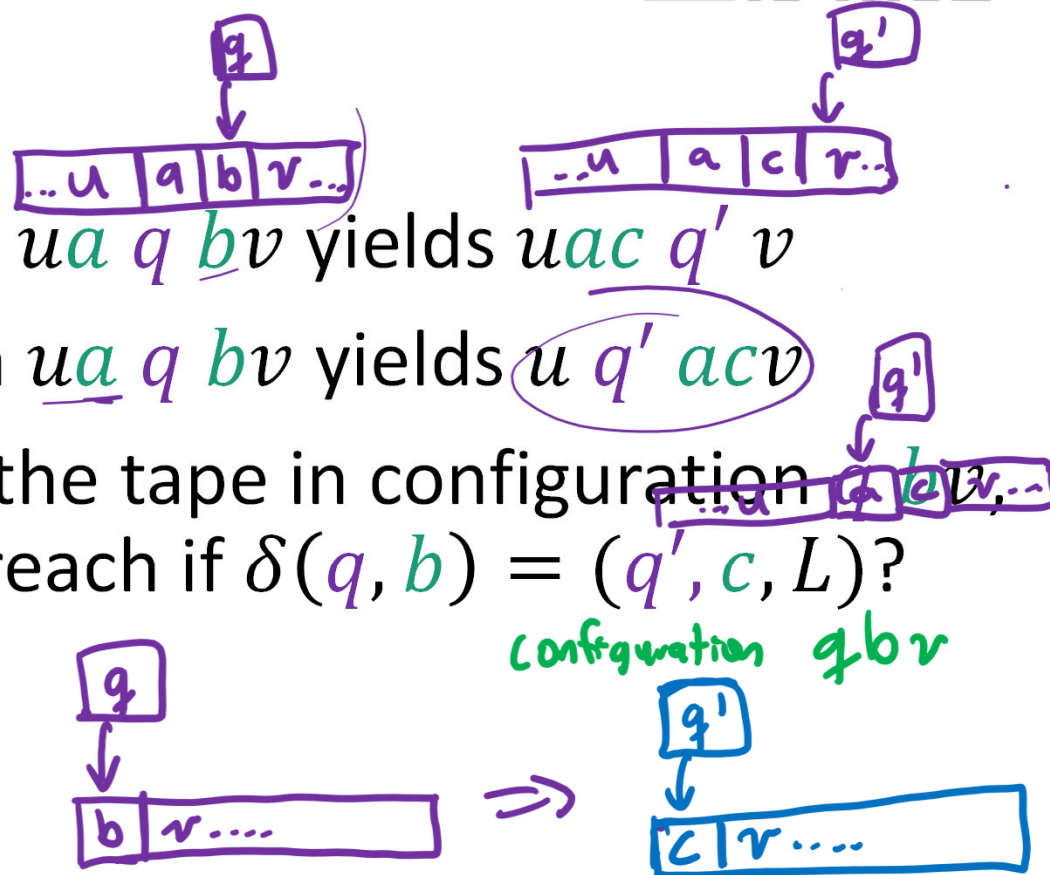 q q'
...u a b v... ...u a c v...
ua q bv yields uac q' v
ua q bv yields u q' acv
q'
the tape in configuration q bv,
...u a c v...
reach if δ(q, b) = (q', c, L)?
configuration qbv
q q'
b v.... ⇒ c v....